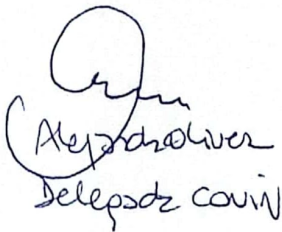 Alejandra Oliver
Delegada COVIÑ